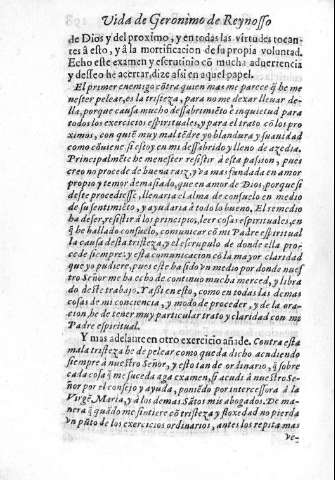 Vida de Geronimo de Reynosso
de Dios y del proximo, y en todas las virtudes tocan-
tes à esto, y à la mortificacion de su propia voluntad.
Echo este examen y escrutinio cõ mucha aduertencia
y desseo hẽ acertar, dize asi en aquel papel.
El primer enemigo cõtra quien mas me parece q̃ he me
nester pelear, es la tristeza, para no me dexar lleuar de-
lla, porque causa mucho dessabrimiẽto e inquietud para
todos los exercicios espirituales, y para el trato cõ los pro
ximos, con quiẽ muy mal tẽdre yo blandura y suauidad
como cõuiene si estoy en mi dessabrido y lleno de azedia.
Principalmẽte he menester resistir à esta passion, pues
creo no procede de buena raiz, y va mas fundada en amor
propio y temor demasiado, que en amor de Dios, porque si
deste procediesse, llenaria el alma de consuelo en medio
de su sentimiẽto, y ayudaria à todo lo bueno. El remedio
ha de ser, resistir à los principios, leer cosas espirituales, en
q̃ he hallado consuelo, comunicar cõ mi Padre espiritual
la causa desta tristeza, y el escrupulo de donde ella pro-
cede siempre: y esta comunicacion cõ la mayor claridad
que yo pudiere, pues este ha sido vn medio por donde nues
tro Señor me ha echo de continuo mucha merced, y libra
do deste trabajo. Y assi en esto, como en todas las demas
cosas de mi conciencia, y modo de proceder, y de la ora-
cion, he de tener muy particular trato y claridad con mi
Padre espiritual.
Y mas adelante en otro exercicio añade. Contra esta
mala tristeza he de pelear como queda dicho acudiendo
siempre à nuestro Señor, y esto tan de ordinario, q̃ sobre
cada cosa q̃ me suceda aga examen, si acudi à nuestro Se-
ñor por el consejo y ayuda, poniẽdo por intercessora à la
Virgẽ Maria, y à los demas Sãtos mis abogados. De ma-
nera q̃ quãdo me sintiere cõ tristeza y floxedad no pierda
vn pũto de los exercicios ordinarios, antes los repita mas
ve-